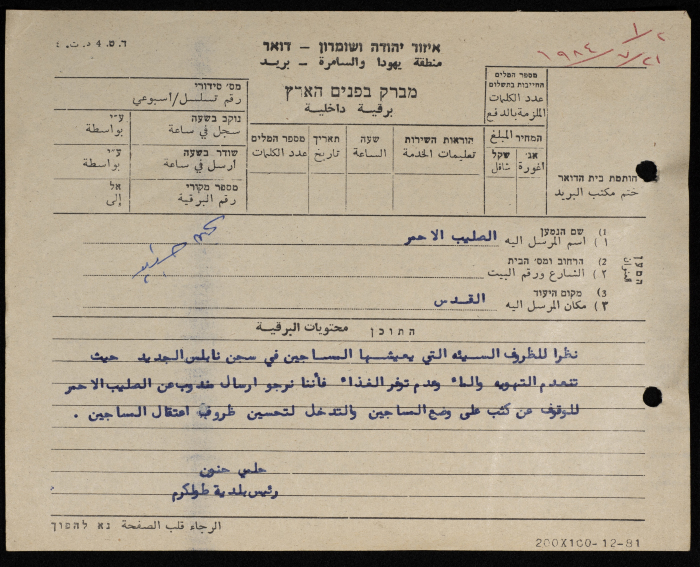 ד.ש. 4 د.ت. ٤
איזור יהודה ושומרון - דואר
منطقة يهودا والسامرة - بريد
١/٢
٢١/٧/١٩٨٤
מברק בפנים הארץ
برقية داخلية
מס׳ סידורי
رقم تسلسل/اسبوعي
נוקב בשעה ע״י
سجل في ساعة بواسطة
שודר בשעה ע״י
ارسل في ساعة بواسطة
מספר מקורי אל
رقم البرقية إلى
מספר המלים
عدد الكلمات
תאריך
تاريخ
שעה
الساعة
הוראות השירות
تعليمات الخدمة
מספר המלים
החייבות בתשלום
عدد الكلمات
الملزمة بالدفع
המחיר المبلغ
שקל אג׳
شاقل أغورة
חותמת בית הדואר
ختم مكتب البريد
המען
العنوان
1) שם הנמען
١) اسم المرسل اليه الصليب الاحمر
2) הרחוב ומס׳ הבית
٢) الشارع ورقم البيت
3) מקום היעוד
٣) مكان المرسل اليه القدس
התוכן محتويات البرقية
نظرا للظروف السيئه التي يعيشها المساجين في سجن نابلس الجديد حيث
تنعدم التهويه والماء وعدم توفر الغذاء فأننا نرجو ارسال مندوب عن الصليب الاحمر
للوقوف عن كثب على وضع المساجين والتدخل لتحسين ظروف اعتقال المساجين .
حلمي حنون
رئيس بلدية طولكرم
الرجاء قلب الصفحة נא להפוך
200X100-12-81